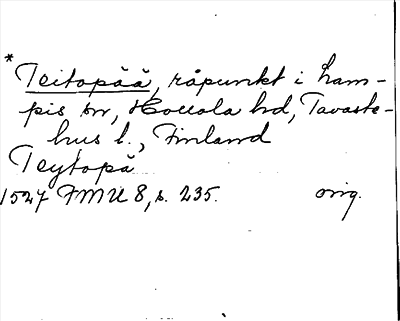 * Teitopää, råpunkt i Lam-
pis sn, Hollola hd, Tavaste-
hus l., Finland
Teytopä
1527 FMU 8, s. 235. orig.